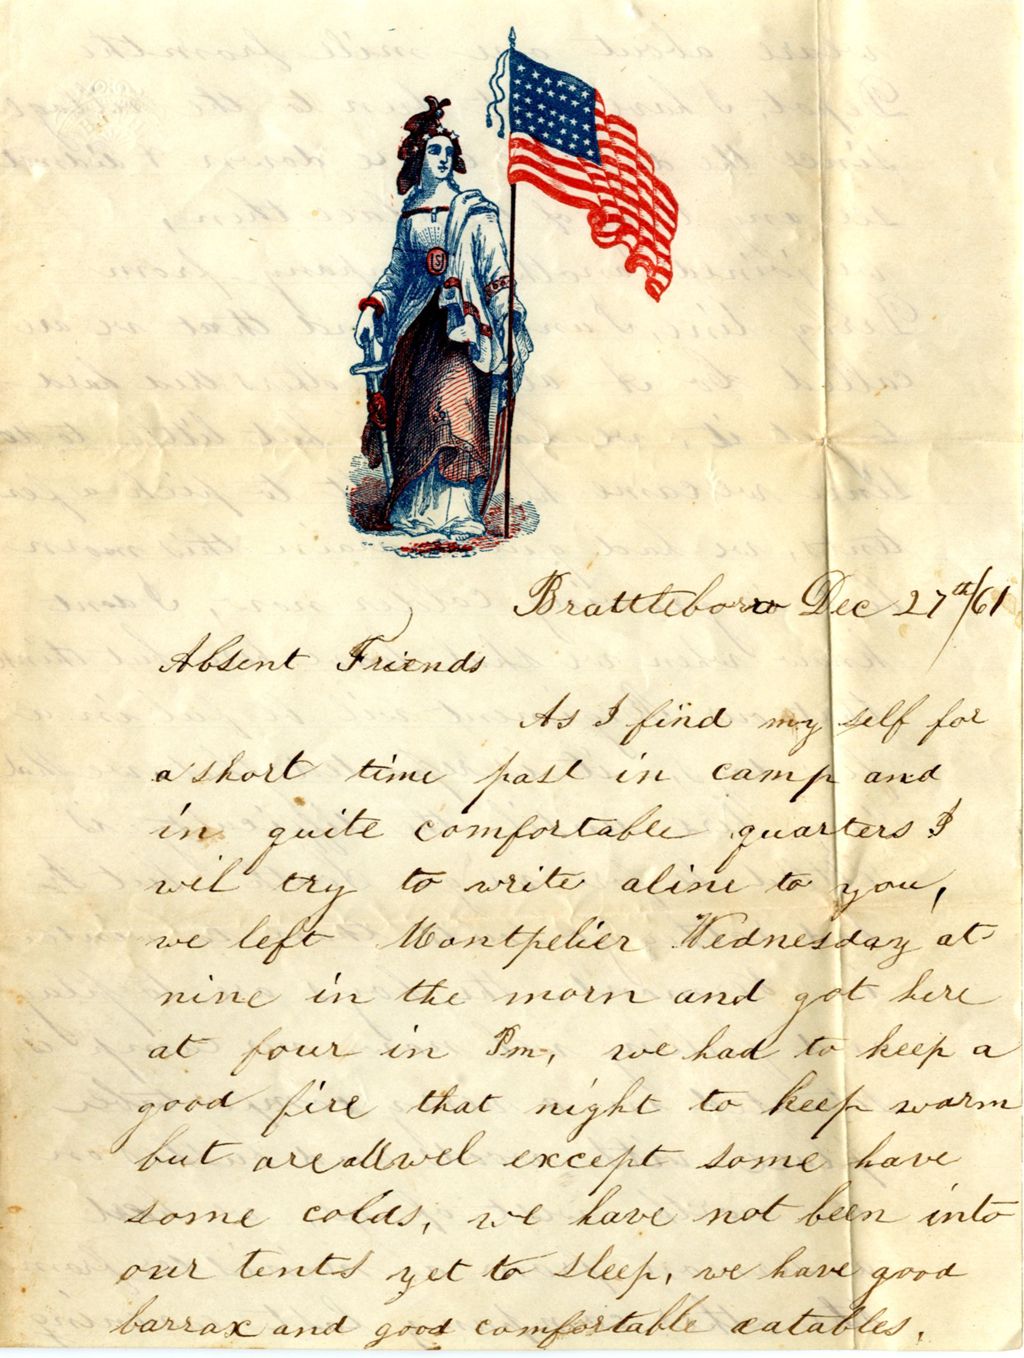 Brattleboro Dec 27th/61
Absent Friends
As I find my self for
a short time past in camp and
in quite comfortable quarters I
wil try to write aline to you,
we left Montpelier Wednesday at
nine in the morn and got here
at four in Pm, we had to keep a
good fire that night to keep warm
but are all wel except some have
some colds, we have not been into
our tents yet to sleep, we have good
barrax and good comfortable eatables,